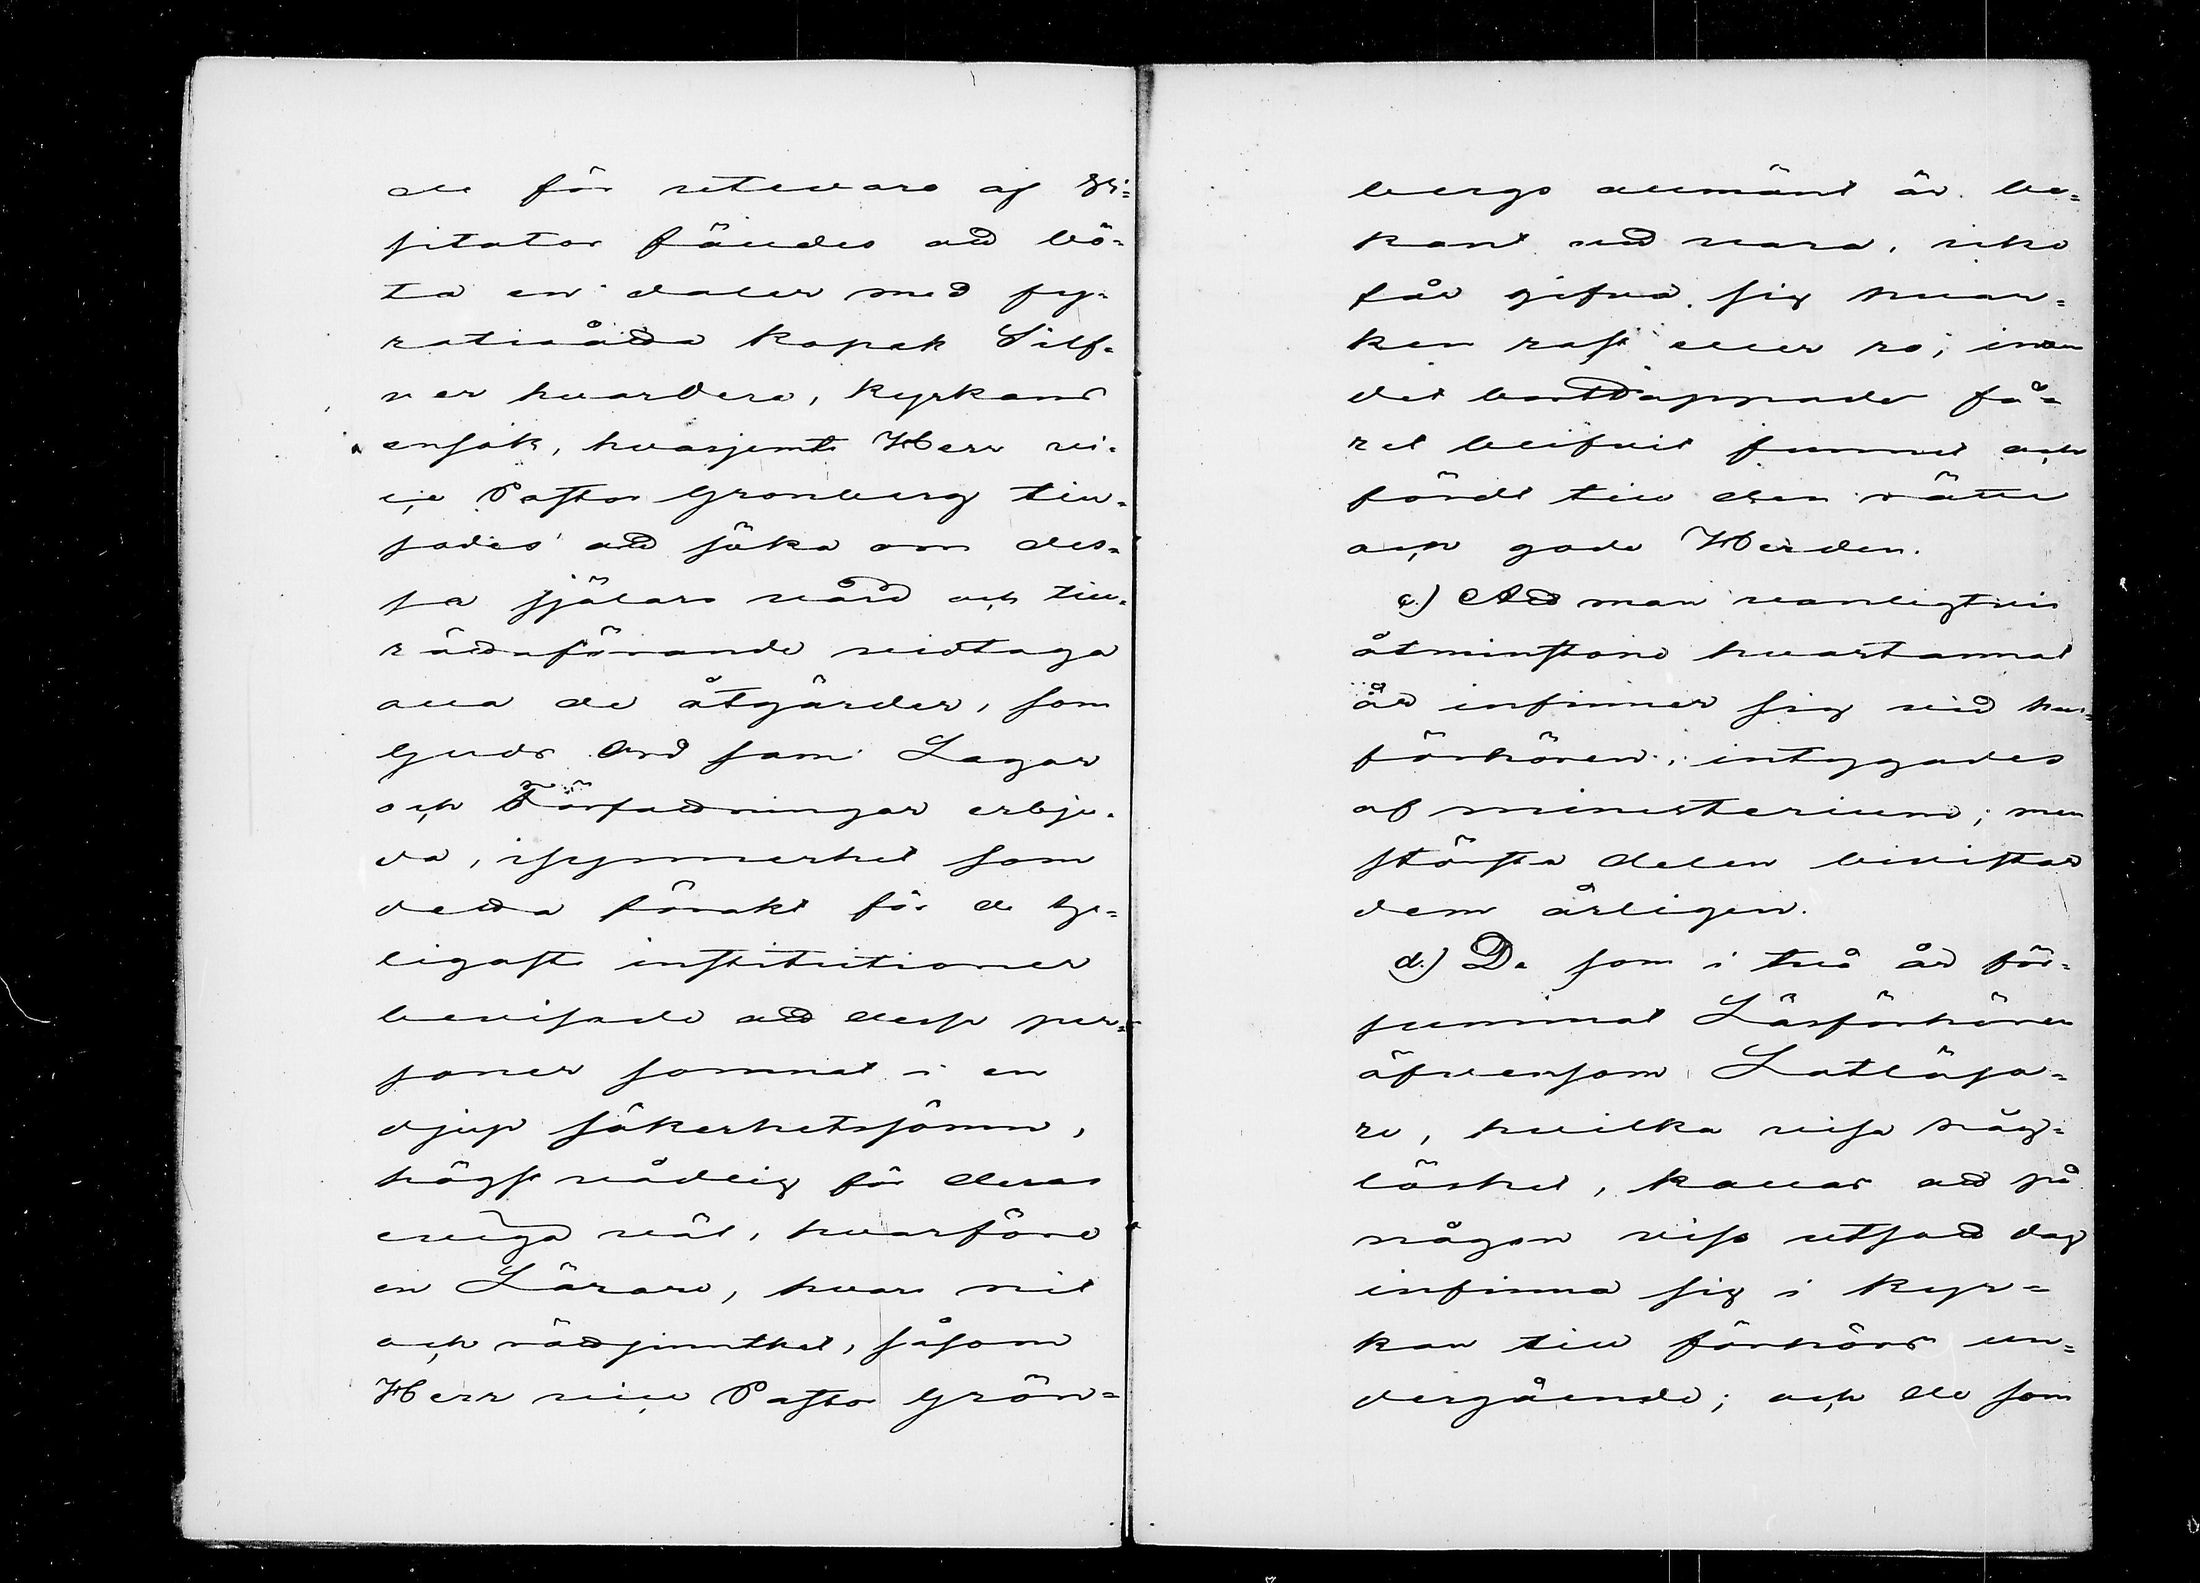 de för utevaro af Vi-
sitator fäldes att bö-
ta en daler med fy-
ratioåtta kopek Silf-
ver hvardera, kyrkans
ensak, hvarjemte Herr vi-
ce Pastor Gronberg till-
sades att söka om des-
sa själars vård och till-
rådaförande vidtaga
alla de åtgärder, som
Guds Ord samt Lagar
och Författningar erbju-
da, isynnerhet som
detta förakt för de he-
ligaste institutioner
bevisade att desse per-
soner somnat i en
djup säkerhetssömn,
högst vådlig för deras
eviga väl, hvarföre
en Lärare, hvars nit
och rättsinnthet, såsom
Herr vice Pastor Grön-
bergs allmänt är be-
kant att vara, icke
får gifva sig hvar-
ken rast eller ro, innan
det borttappade få-
ret blifvit funnet och
fördt till den rätte
och gode Herden.
c.) Att man vanligtvis
åtminstone hvartannat
år infinner sig vid hus-
förhören, intygades
af ministerium; men
största delen bivistar
dem årligen.
d.) De som i två år för-
summat Läsförhören
äfvensom Latläsa-
re, hvilka visa trög-
löshet, kallas att på
någon viss utsatt dag
infinna sig i Kyr-
kan till förhörs un-
dergående; och de som